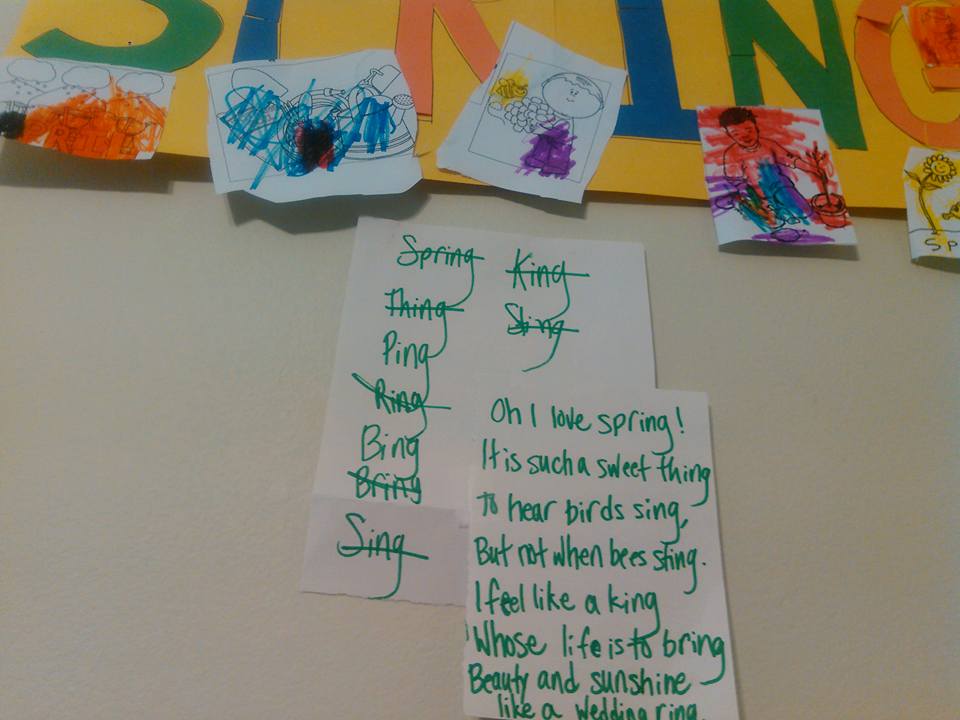 SPRING
Spring
Thing
Ping
Ring
Bing
Bring
Sing
King
Sting
Oh I love spring!
It is such a sweet thing
to hear birds sing,
But not when bees sting.
I feel like a king
Whose life is to bring
Beauty and sunshine
like a wedding ring.
SP